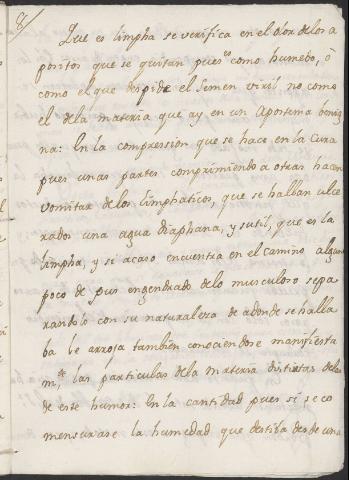 8/
Que es limpha se verifica en el olor de los a
positos que se quitan pues es como humedo, ò
como el que despide el semen viril no como
el de la materia que ay en un Apostema benig
na: En la compression que se hace en la Cura
pues unas partes comprimiendo a otras hacen
vomitar de los limphaticos, que se hallan ulce
rados una agua diaphana, y sutil, que es la
limpha, y si acaso encuentra en el camino algun
poco de pus engendrado de lo musculoso sepa
randolo con su naturaleza de adonde se halla
ba le arroja tambien conociendose manifiesta
m.te las particulas de la materia distintas de las
de este humor: En la cantidad pues si se co
mensurase la humedad que destila desde una